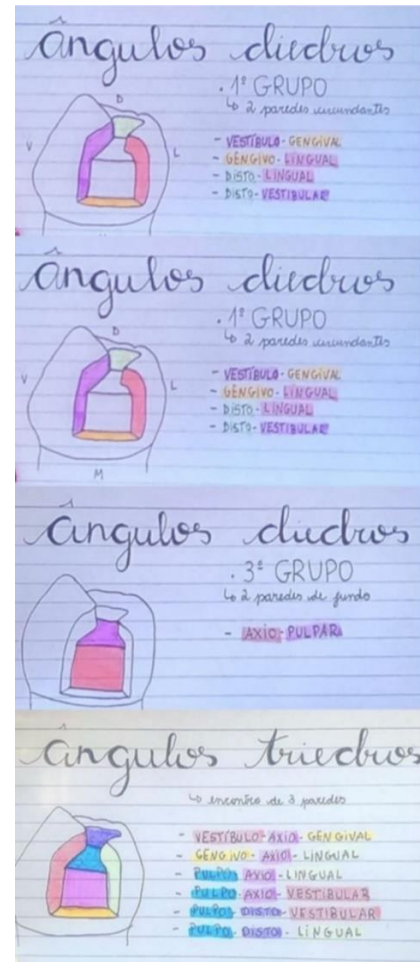 ângulos diedros
. 1º GRUPO
↳ 2 paredes circundantes
D
V
L
- VESTÍBULO-GENGIVAL
- GENGIVO-LINGUAL
- DISTO-LINGUAL
- DISTO-VESTIBULAR
ângulos diedros
. 1º GRUPO
↳ 2 paredes circundantes
D
V
L
- VESTÍBULO-GENGIVAL
- GENGIVO-LINGUAL
- DISTO-LINGUAL
- DISTO-VESTIBULAR
M
ângulos diedros
. 3º GRUPO
↳ 2 paredes de fundo
- AXIO-PULPAR
ângulos triedros
↳ encontro de 3 paredes
- VESTÍBULO-AXIO-GENGIVAL
- GENGIVO-AXIO-LINGUAL
- PULPO-AXIO-LINGUAL
- PULPO-AXIO-VESTIBULAR
- PULPO-DISTO-VESTIBULAR
- PULPO-DISTO-LINGUAL